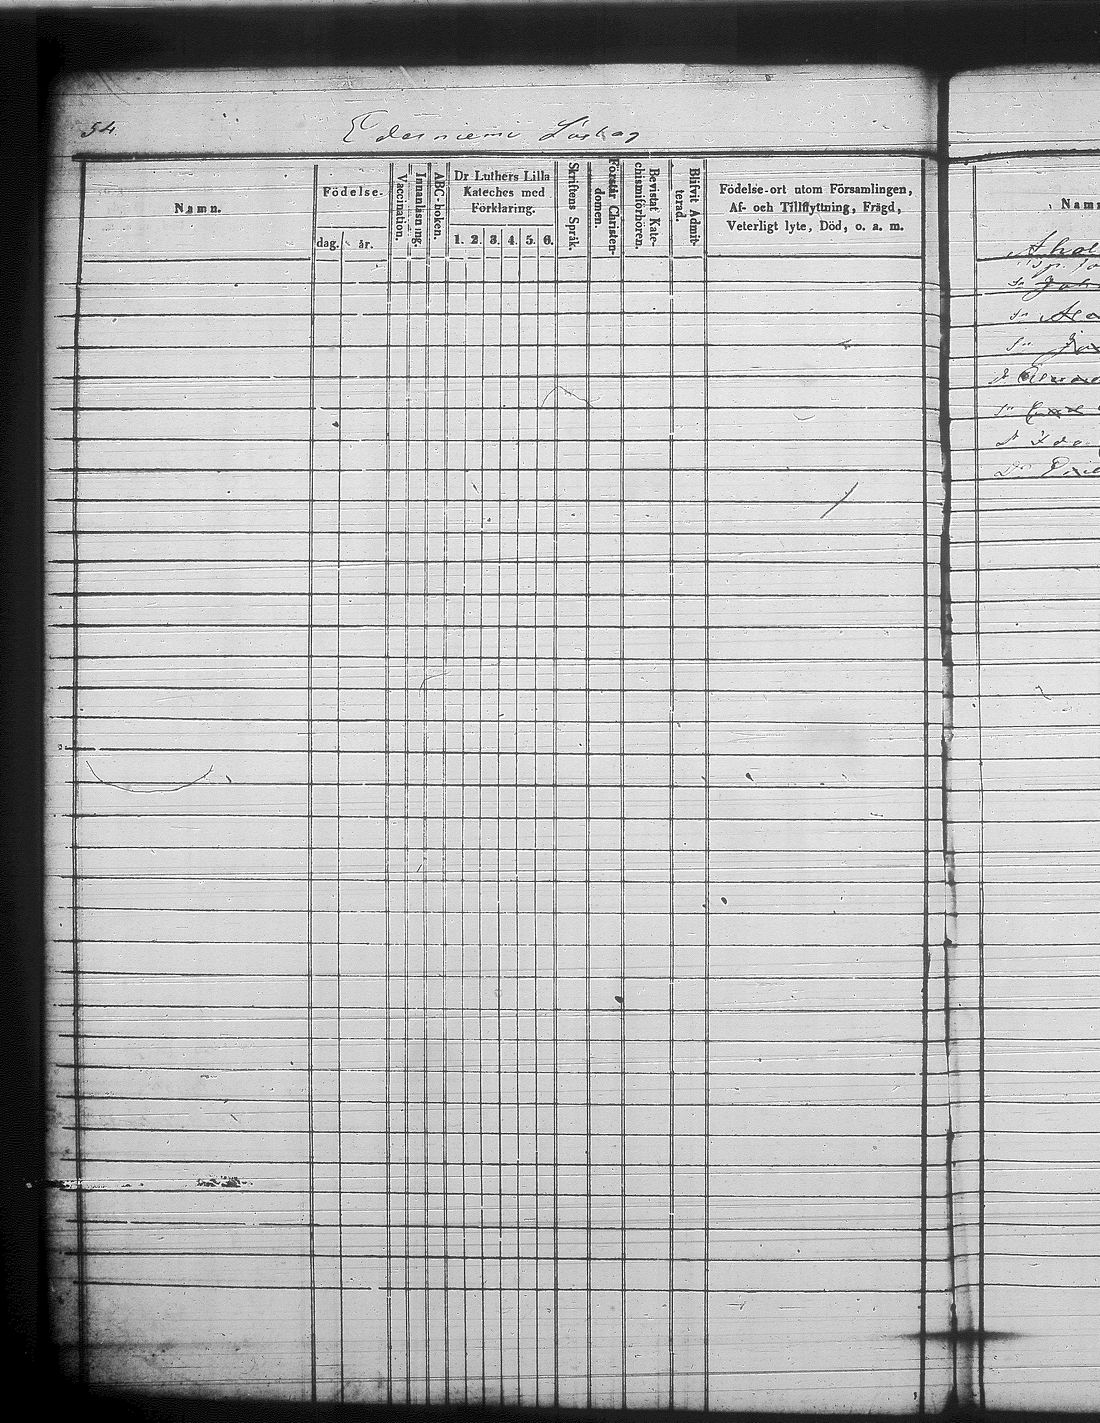 54
Edesniemi Löshag
Namn.
Födelse-
dag. år.
Vaccination.
Innanläsning.
ABC-boken.
Dr Luthers Lilla
Kateches med
Förklaring.
1. 2. 3. 4. 5. 6.
Skriftens Språk.
Förstår Christen-
domen.
Bevistat Kate-
chismiförhören.
Blifvit Admit-
terad.
Födelse-ort utom Församlingen,
Af- och Tillflyttning, Frägd,
Veterligt lyte, Död, o. a. m.
Namn